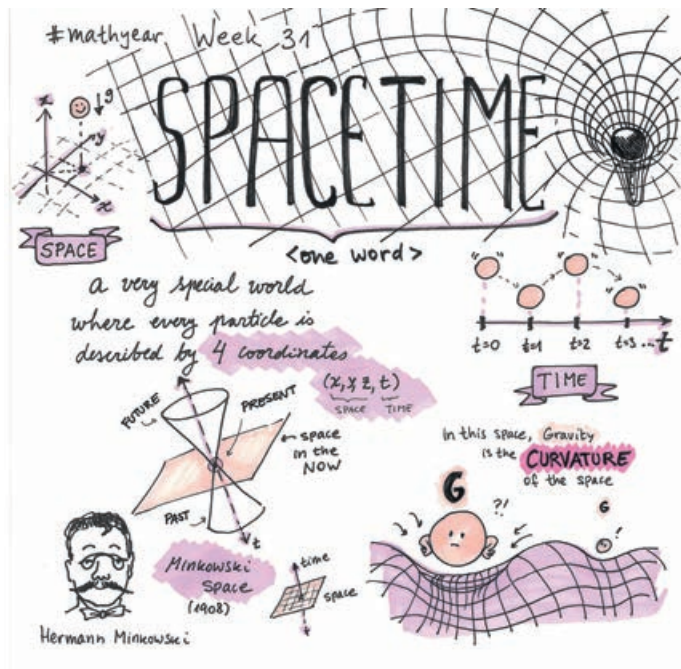 #mathyear Week 31
SPACETIME
z
g
y
x
SPACE
<one word>
a very special world
where every particle is
described by 4 coordinates
(x, y, z, t)
SPACE TIME
t=0 t=1 t=2 t=3 ... t
TIME
FUTURE
PRESENT
space
in the
NOW
PAST
t
In this space, Gravity
is the CURVATURE
of the space
G
?!
G
!
Minkowski
Space
(1908)
time
space
Hermann Minkowski